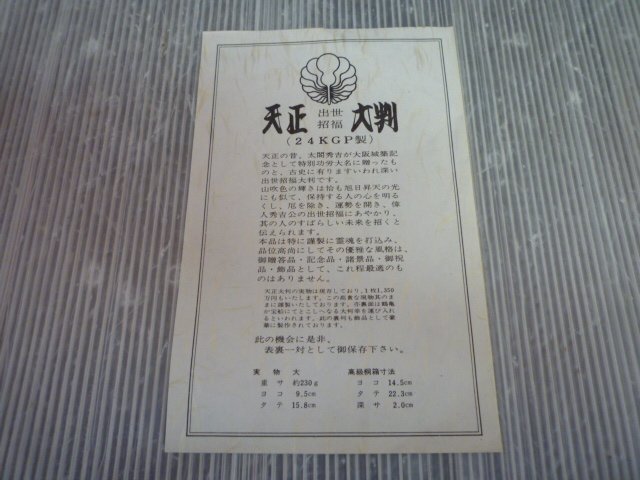 天正 出世招福 大判
(24KGP製)
天正の昔、太閤秀吉が大阪城築記
念として特別功労大名に贈ったも
のと、古史に有りますいわれ深い
出世招福大判です。
山吹色の輝さは恰も旭日昇天の光
にも似て、保持する人の心を明る
くし、厄を除き、運勢を開き、偉
人秀吉公の出世招福にあやかり、
其の人のすばらしい未来を招くと
伝えられます。
本品は特に謹製に霊魂を打込み、
品位高尚にしてその優雅な風格は、
御贈答品・記念品・諸景品・御祝
品・飾品として、これ程最適のも
のはありません。
天正大判の実物は現存しており、1枚1,350
万円もいたします。この高貴な現物其のま
まに謹製いたしております。作裏面は鶴亀
か宝船にてとこしへなる大判幸を運び入れ
るといわれます。此の裏判も飾品として豪
華に製作されております。
此の機会に是非、
表裏一対として御保存下さい。
実物大 高級桐箱寸法
重サ 約230g ヨコ 14.5cm
ヨコ 9.5cm タテ 22.3cm
タテ 15.8cm 深サ 2.0cm